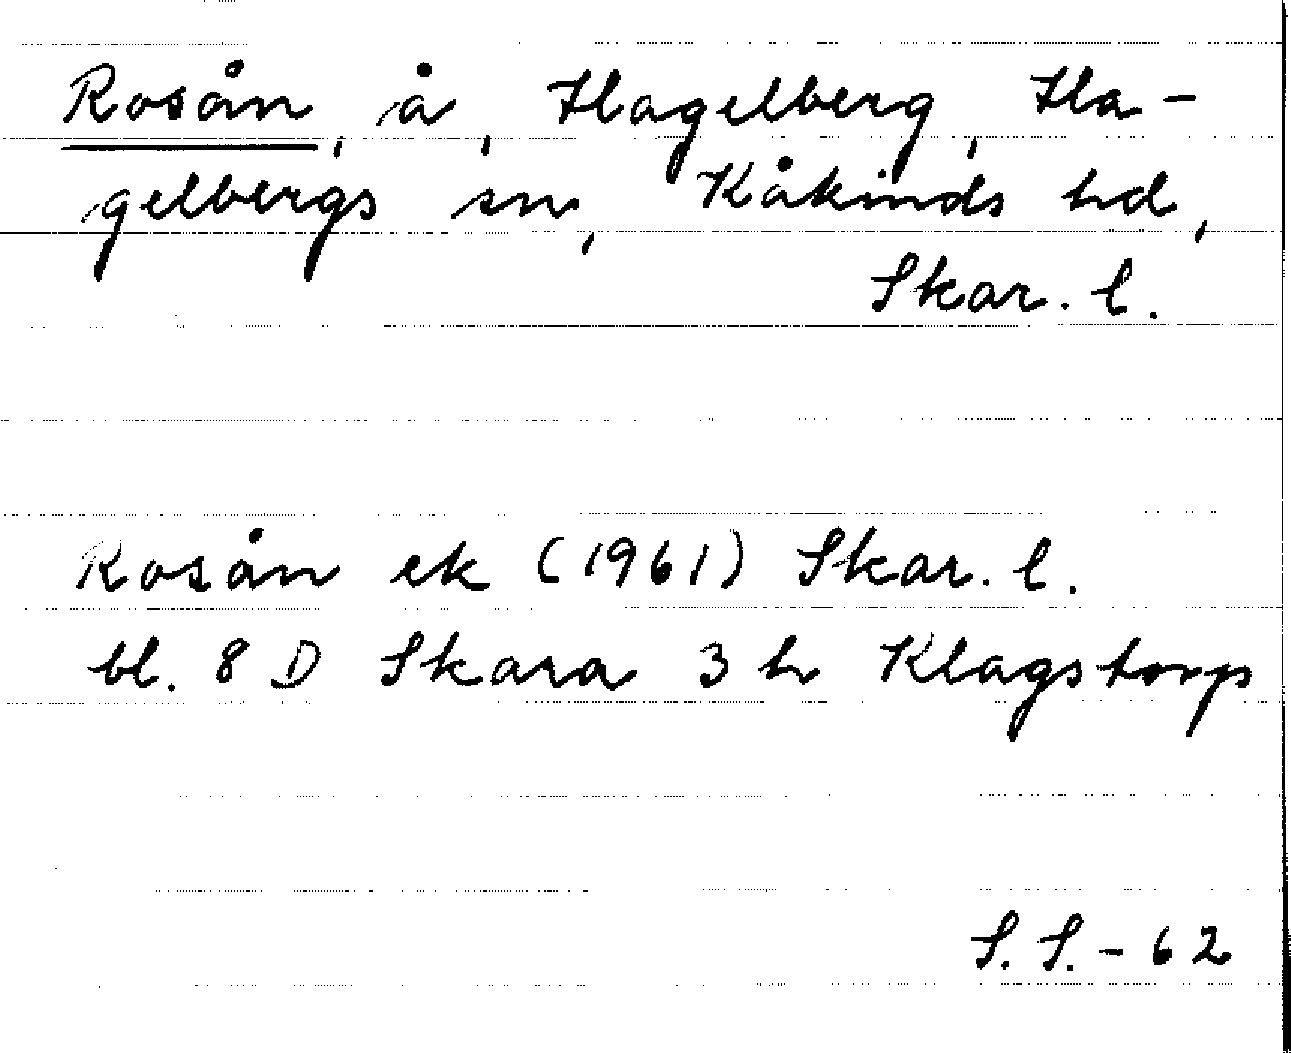 Rosån, å, Hagelberg, Ha-
gelbergs sn, Kåkinds hd,
Skar. l.
Rosån ek (1961) Skar. l.
bl. 8 D Skara 3 h Klagstorp
S. S. - 62